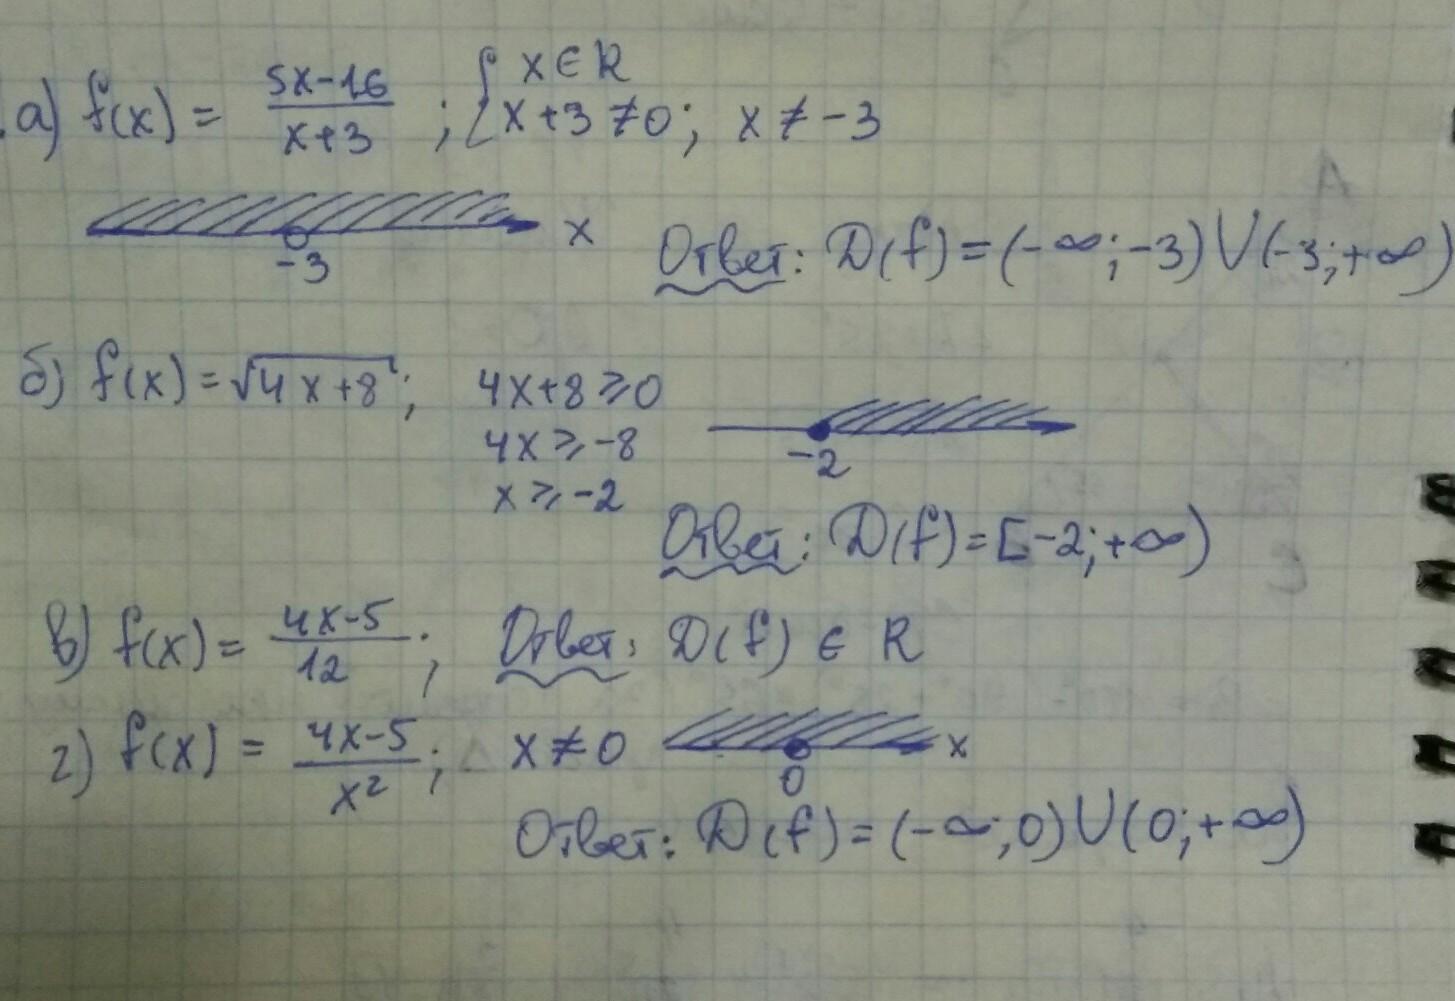 а) f(x) = (5x-16)/(x+3) ; { x ∈ R
x+3 ≠ 0; x ≠ -3
-3 x Ответ: D(f) = (-∞; -3) ∪ (-3; +∞)
б) f(x) = √(4x+8); 4x+8 ⩾ 0
4x ⩾ -8
-2
x ⩾ -2
Ответ: D(f) = [-2; +∞)
в) f(x) = (4x-5)/12; Ответ: D(f) ∈ R
г) f(x) = (4x-5)/x²; x ≠ 0 0 x
Ответ: D(f) = (-∞; 0) ∪ (0; +∞)